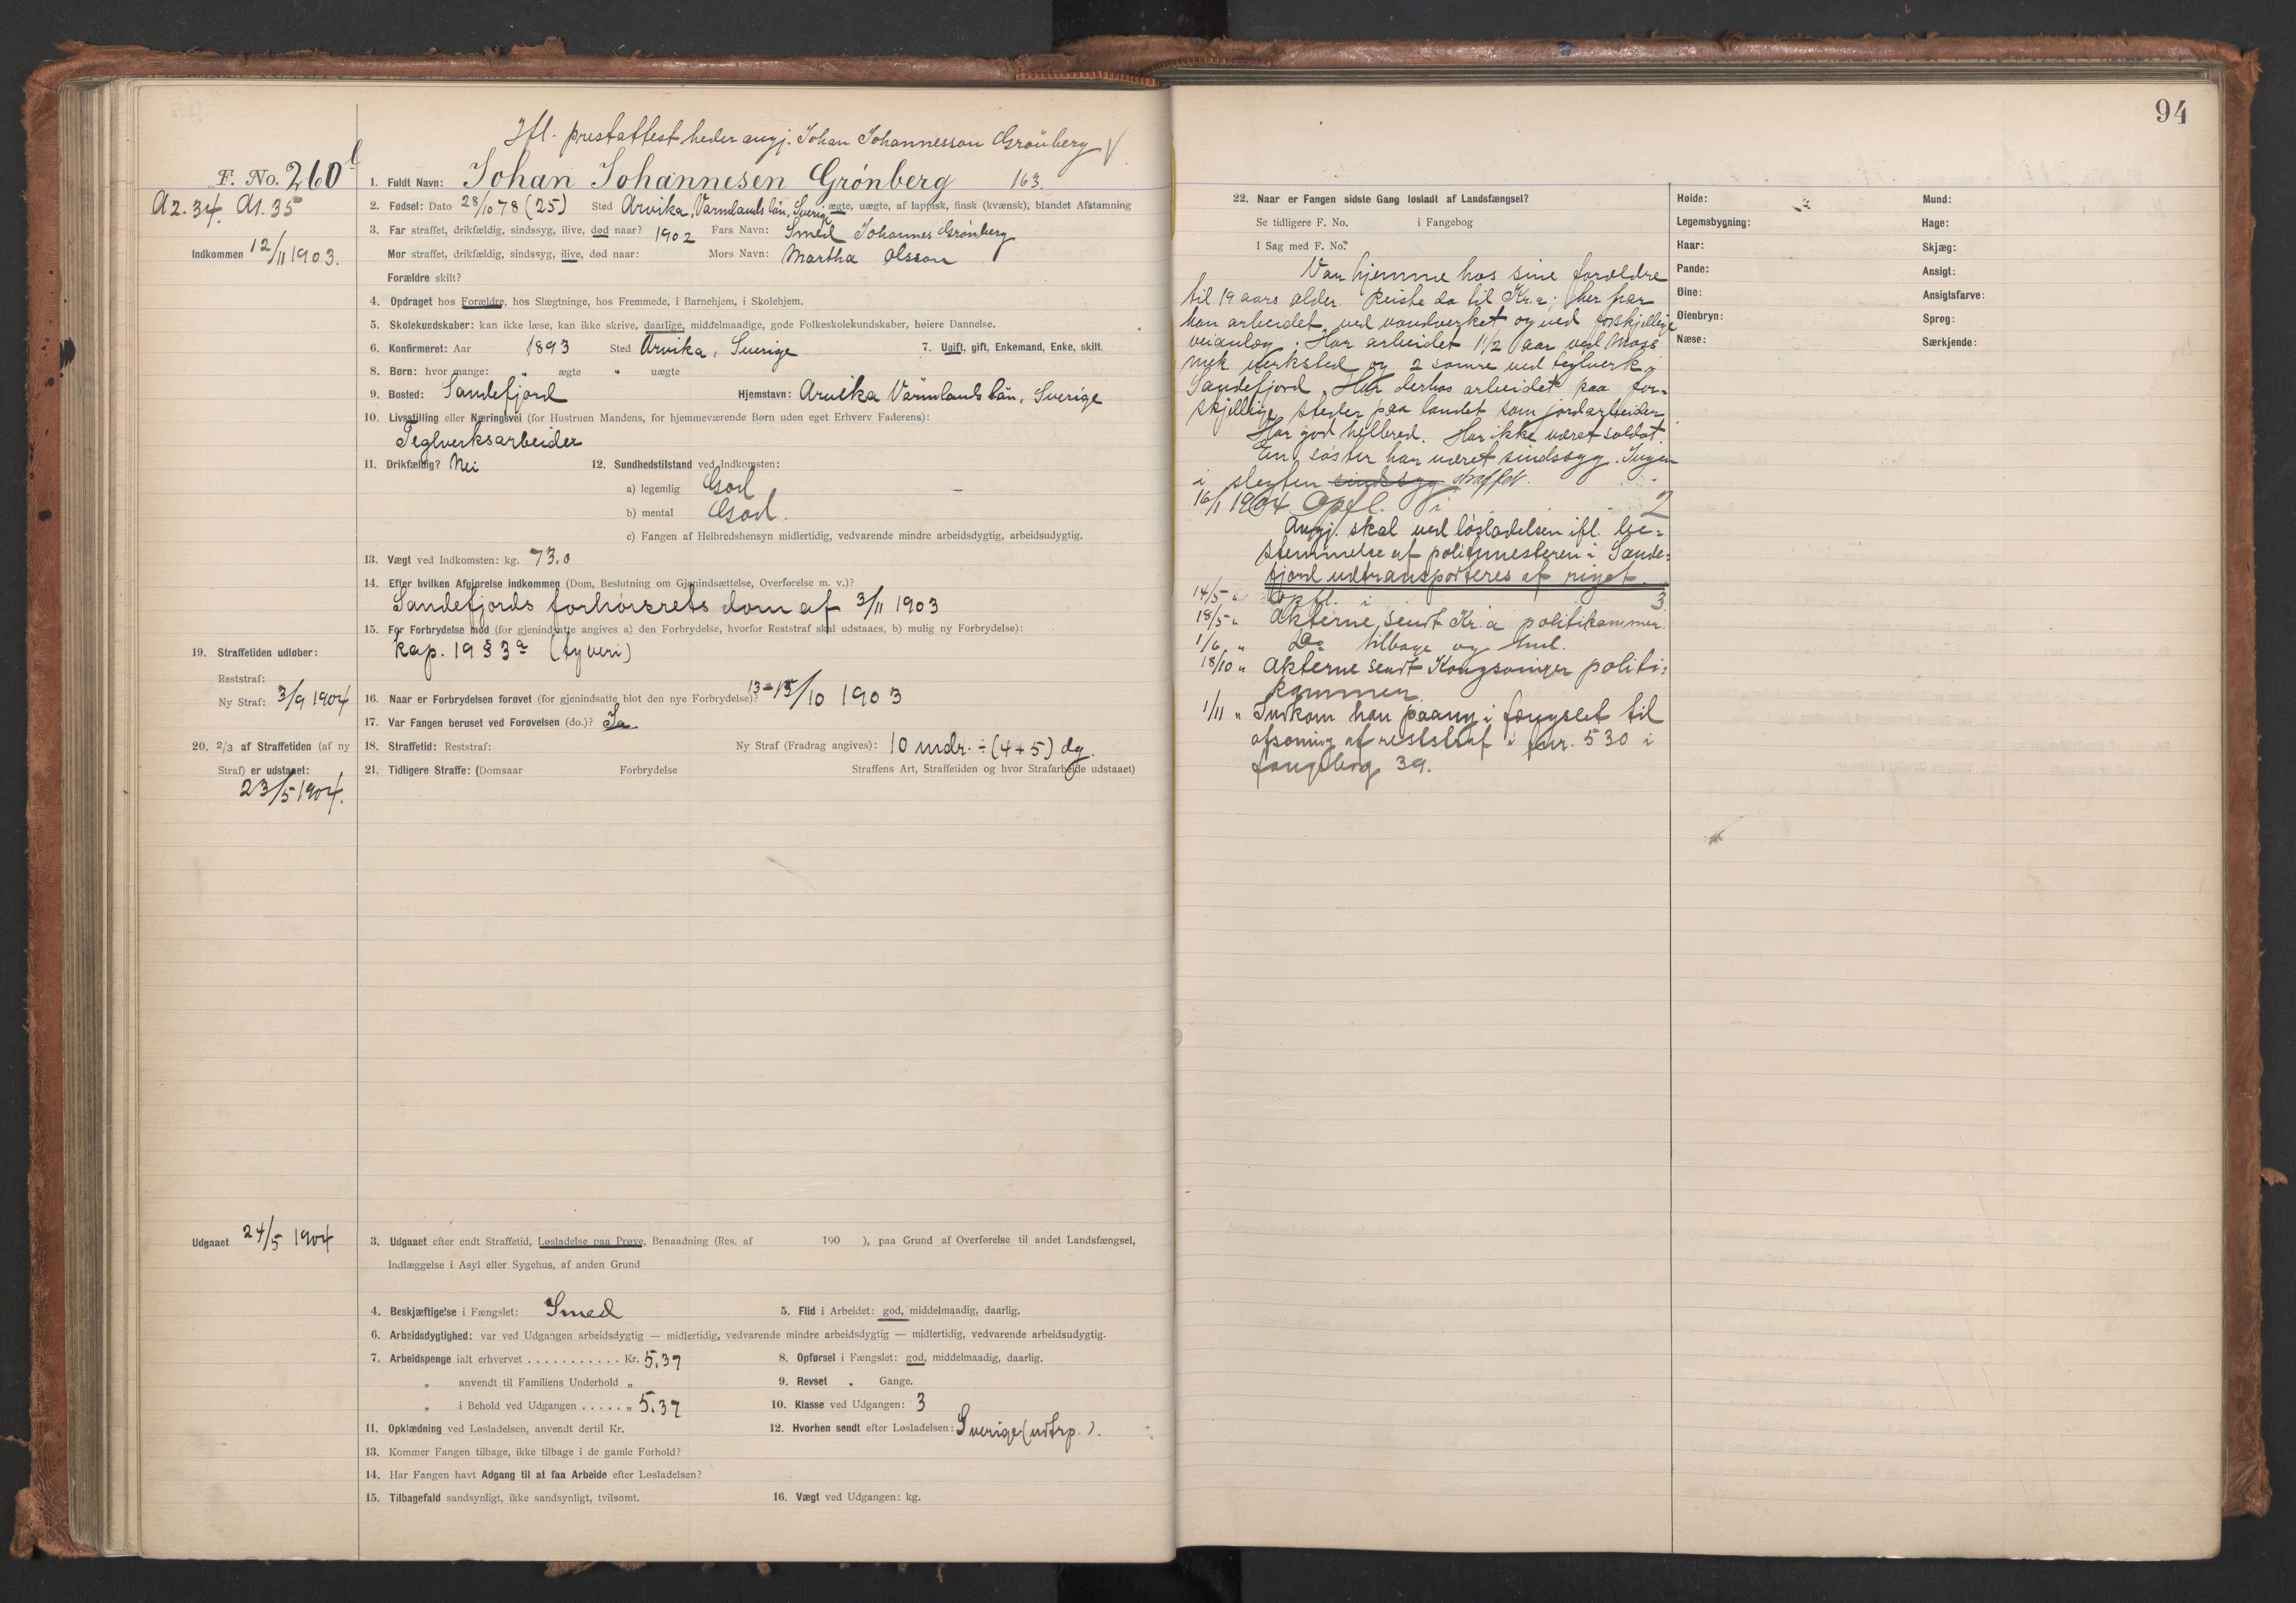 Ifl. prestattest heder angj. Johan Johannesson Grönberg
F. No. 260
A2. 34. A1. 35
Indkommen 12/11 1903.
1. Fuldt Navn: Johan Johannesen Grønberg 163.
2. Fødsel: Dato 28/10 78 (25) Sted Arvika, Varmlands län, Sverige ægte, uægte, af lappisk, finsk (kvænsk), blandet Afstamning
3. Far straffet, drikfældig, sindssyg, ilive, død naar? 1902 Fars Navn: Smed Johannes Grønberg
Mor straffet, drikfældig, sindssyg, ilive, død naar: Mors Navn: Martha Olsson
Forældre skilt?
4. Opdraget hos Forældre, hos Slægtninge, hos Fremmede, i Barnehjem, i Skolehjem.
5. Skolekundskaber: kan ikke læse, kan ikke skrive, daarlige, middelmaadige, gode Folkeskolekundskaber, høiere Dannelse.
6. Konfirmeret: Aar 1893 Sted Arvika, Sverige 7. Ugift, gift, Enkemand, Enke, skilt.
8. Børn: hvor mange: " ægte " uægte
9. Bosted: Sandefjord Hjemstavn: Arvika Värmlands län, Sverige
10. Livsstilling eller Næringsvei (for Hustruen Mandens, for hjemmeværende Børn uden eget Erhverv Faderens):
Teglverksarbeider
11. Drikfældig? Nei 12. Sundhedstilstand ved Indkomsten:
a) legemlig God
b) mental God.
c) Fangen af Helbredshensyn midlertidig, vedvarende mindre arbeidsdygtig, arbeidsudygtig.
13. Vægt ved Indkomsten: kg. 73.0
14. Efter hvilken Afgjørelse indkommen (Dom, Beslutning om Gjenindsættelse, Overførelse m. v.)?
Sandefjords forhørsrets dom af 3/11 1903
15. For Forbrydelse mod (for gjenindsatte angives a) den Forbrydelse, hvorfor Reststraf skal udstaaes, b) mulig ny Forbrydelse):
Kap. 19 § 3a (tyveri)
19. Straffetiden udløber:
Reststraf:
Ny Straf: 3/9 1904
16. Naar er Forbrydelsen forøvet (for gjenindsatte blot den nye Forbrydelse)? 13-15/10 1903
17. Var Fangen beruset ved Forøvelsen (do.)? Ja
20. 2/3 af Straffetiden (af ny Straf) er udstaaet:
23/5 1904.
18. Straffetid: Reststraf: Ny Straf (Fradrag angives): 10 mdr. ÷ (4+5) dg.
21. Tidligere Straffe: (Domsaar Forbrydelse Straffens Art, Straffetiden og hvor Strafarbeide udstaaet)
Udgaaet 24/5 1904
3. Udgaaet efter endt Straffetid, Løsladelse paa Prøve, Benaadning (Res. af 190 ), paa Grund af Overførelse til andet Landsfængsel,
Indlæggelse i Asyl eller Sygehus, af anden Grund
4. Beskjæftigelse i Fængslet: Smed 5. Flid i Arbeidet: god, middelmaadig, daarlig.
6. Arbeidsdygtighed: var ved Udgangen arbeidsdygtig — midlertidig, vedvarende mindre arbeidsdygtig — midlertidig, vedvarende arbeidsudygtig.
7. Arbeidspenge ialt erhvervet . . . . . . . . . . . Kr. 5.37 8. Opførsel i Fængslet: god, middelmaadig, daarlig.
" anvendt til Familiens Underhold " 9. Revset " Gange.
" i Behold ved Udgangen . . . . . " 5.37 10. Klasse ved Udgangen: 3
11. Opklædning ved Løsladelsen, anvendt dertil Kr. 12. Hvorhen sendt efter Løsladelsen: Sverige (udtrp.).
13. Kommer Fangen tilbage, ikke tilbage i de gamle Forhold?
14. Har Fangen havt Adgang til at faa Arbeide efter Løsladelsen?
15. Tilbagefald sandsynligt, ikke sandsynligt, tvilsomt. 16. Vægt ved Udgangen: kg.
94
22. Naar er Fangen sidste Gang løsladt af Landsfængsel?
Se tidligere F. No. i Fangebog
I Sag med F. No.
Var hjemme hos sine forældre
til 19 aars alder. Reiste da til Kr.a; her har
han arbeidet ved vandverket og ved forskjellige
veianlæg. Har arbeidet 1 1/2 aar ved Moss
mek verksted og 2 somre ved teglverk i
Sandefjord. Har derhos arbeidet paa for-
skjellige steder paa landet som jordarbeider.
Har god helbred. Har ikke været soldat.
En søster har været sindssyg. Ingen
i slegten sindssyg straffet.
16/1 1904 Opfl. i 2
Angj. skal ved løsladelsen ifl. be-
stemmelse af politimesteren i Sande-
fjord udtransporteres af riget.
14/5 " Opfl. i 3
18/5 " Akterne sendt Kr.a politikammer.
1/6 " Do tilbage og hml.
18/10 " Akterne sendt Kongsvinger politi-
kammer.
1/11 " Indkom han paany i fængslet til
afsoning af reststraf i fnr. 530 i
fangebog 39.
Høide:
Legemsbygning:
Haar:
Pande:
Øine:
Øienbryn:
Næse:
Mund:
Hage:
Skjæg:
Ansigt:
Ansigtsfarve:
Sprog:
Særkjende: